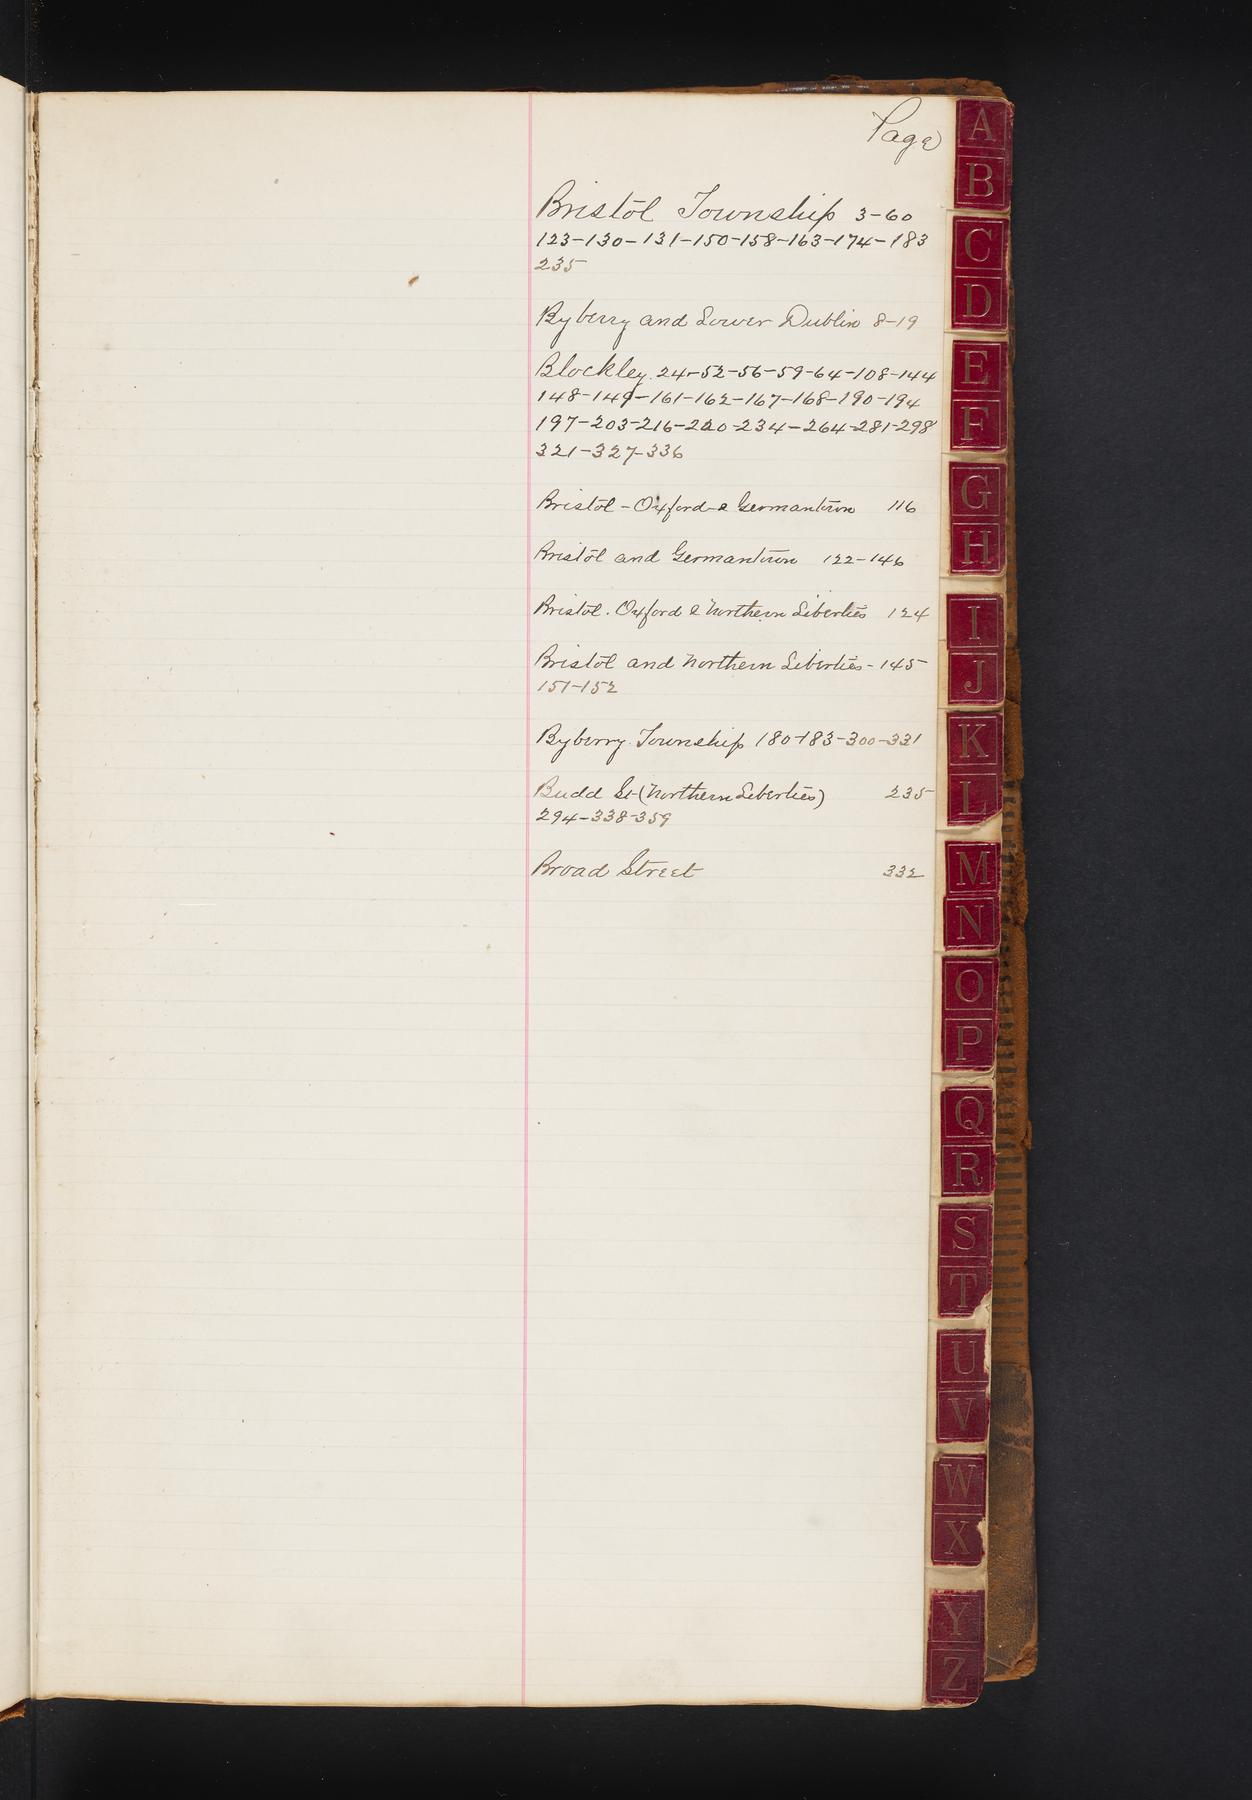 Page
Bristol Township 3-60
123-130-131-150-158-163-174-183
235
Byberry and Lower Dublin 8-19
Blockley. 24-52-56-59-64-108-144
148-149-161-162-167-168-190-194
197-203-216-220-234-264-281-298
321-327-336
Bristol - Oxford & Germantown 116
Bristol and Germantown 122-146
Bristol. Oxford & Northern Liberties 124
Bristol and Northern Liberties - 145
151-152
Byberry Township 180-183-300-331
Budd St (Northern Liberties) 235
294-338-359
Broad Street 332
A
B
C
D
E
F
G
H
I
J
K
L
M
N
O
P
Q
R
S
T
U
V
W
X
Y
Z